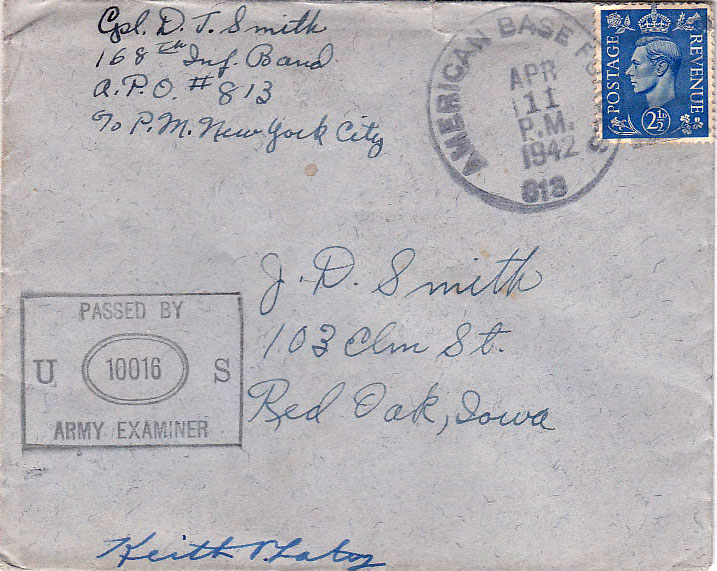 Cpl. D. T. Smith
168th Inf. Band
A.P.O. # 813
℅ P.M. New York City
AMERICAN BASE
APR
11
P.M.
1942
813
POSTAGE
REVENUE
2½D
J. D. Smith
103 Elm St.
Red Oak, Iowa
PASSED BY
U 10016 S
ARMY EXAMINER
Keith